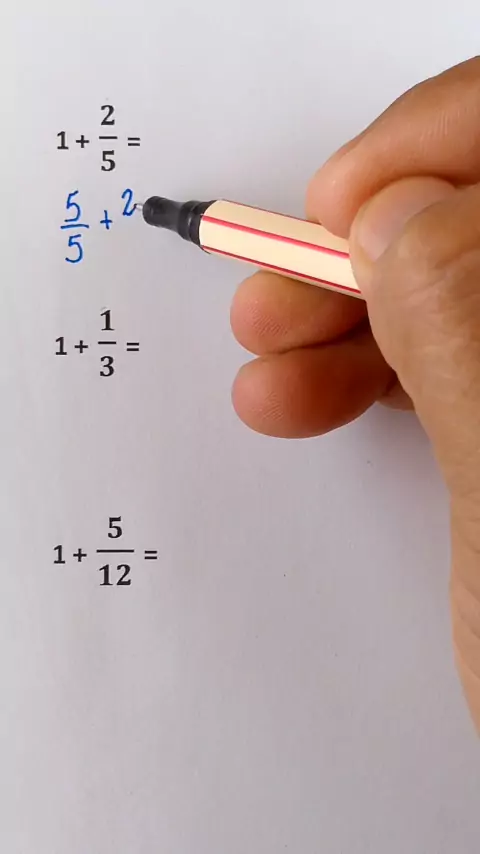 1 + 2/5 =
5/5 + 2
1 + 1/3 =
1 + 5/12 =